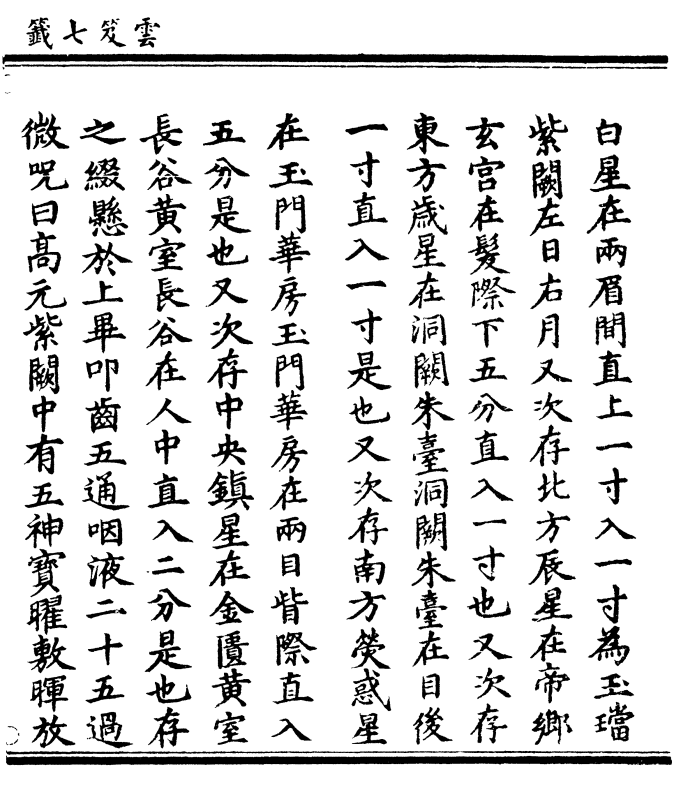 雲笈七籤
白星在兩眉間直上一寸入一寸為玉璫
紫闕左日右月又次存北方辰星在帝鄉
玄宮在髮際下五分直入一寸也又次存
東方歲星在洞闕朱臺洞闕朱臺在目後
一寸直入一寸是也又次存南方熒惑星
在玉門華房玉門華房在兩目眥際直入
五分是也又次存中央鎮星在金匱黃室
長谷黃室長谷在人中直入二分是也存
之綴懸於上畢叩齒五通咽液二十五過
微咒曰高元紫闕中有五神寶曜敷暉放